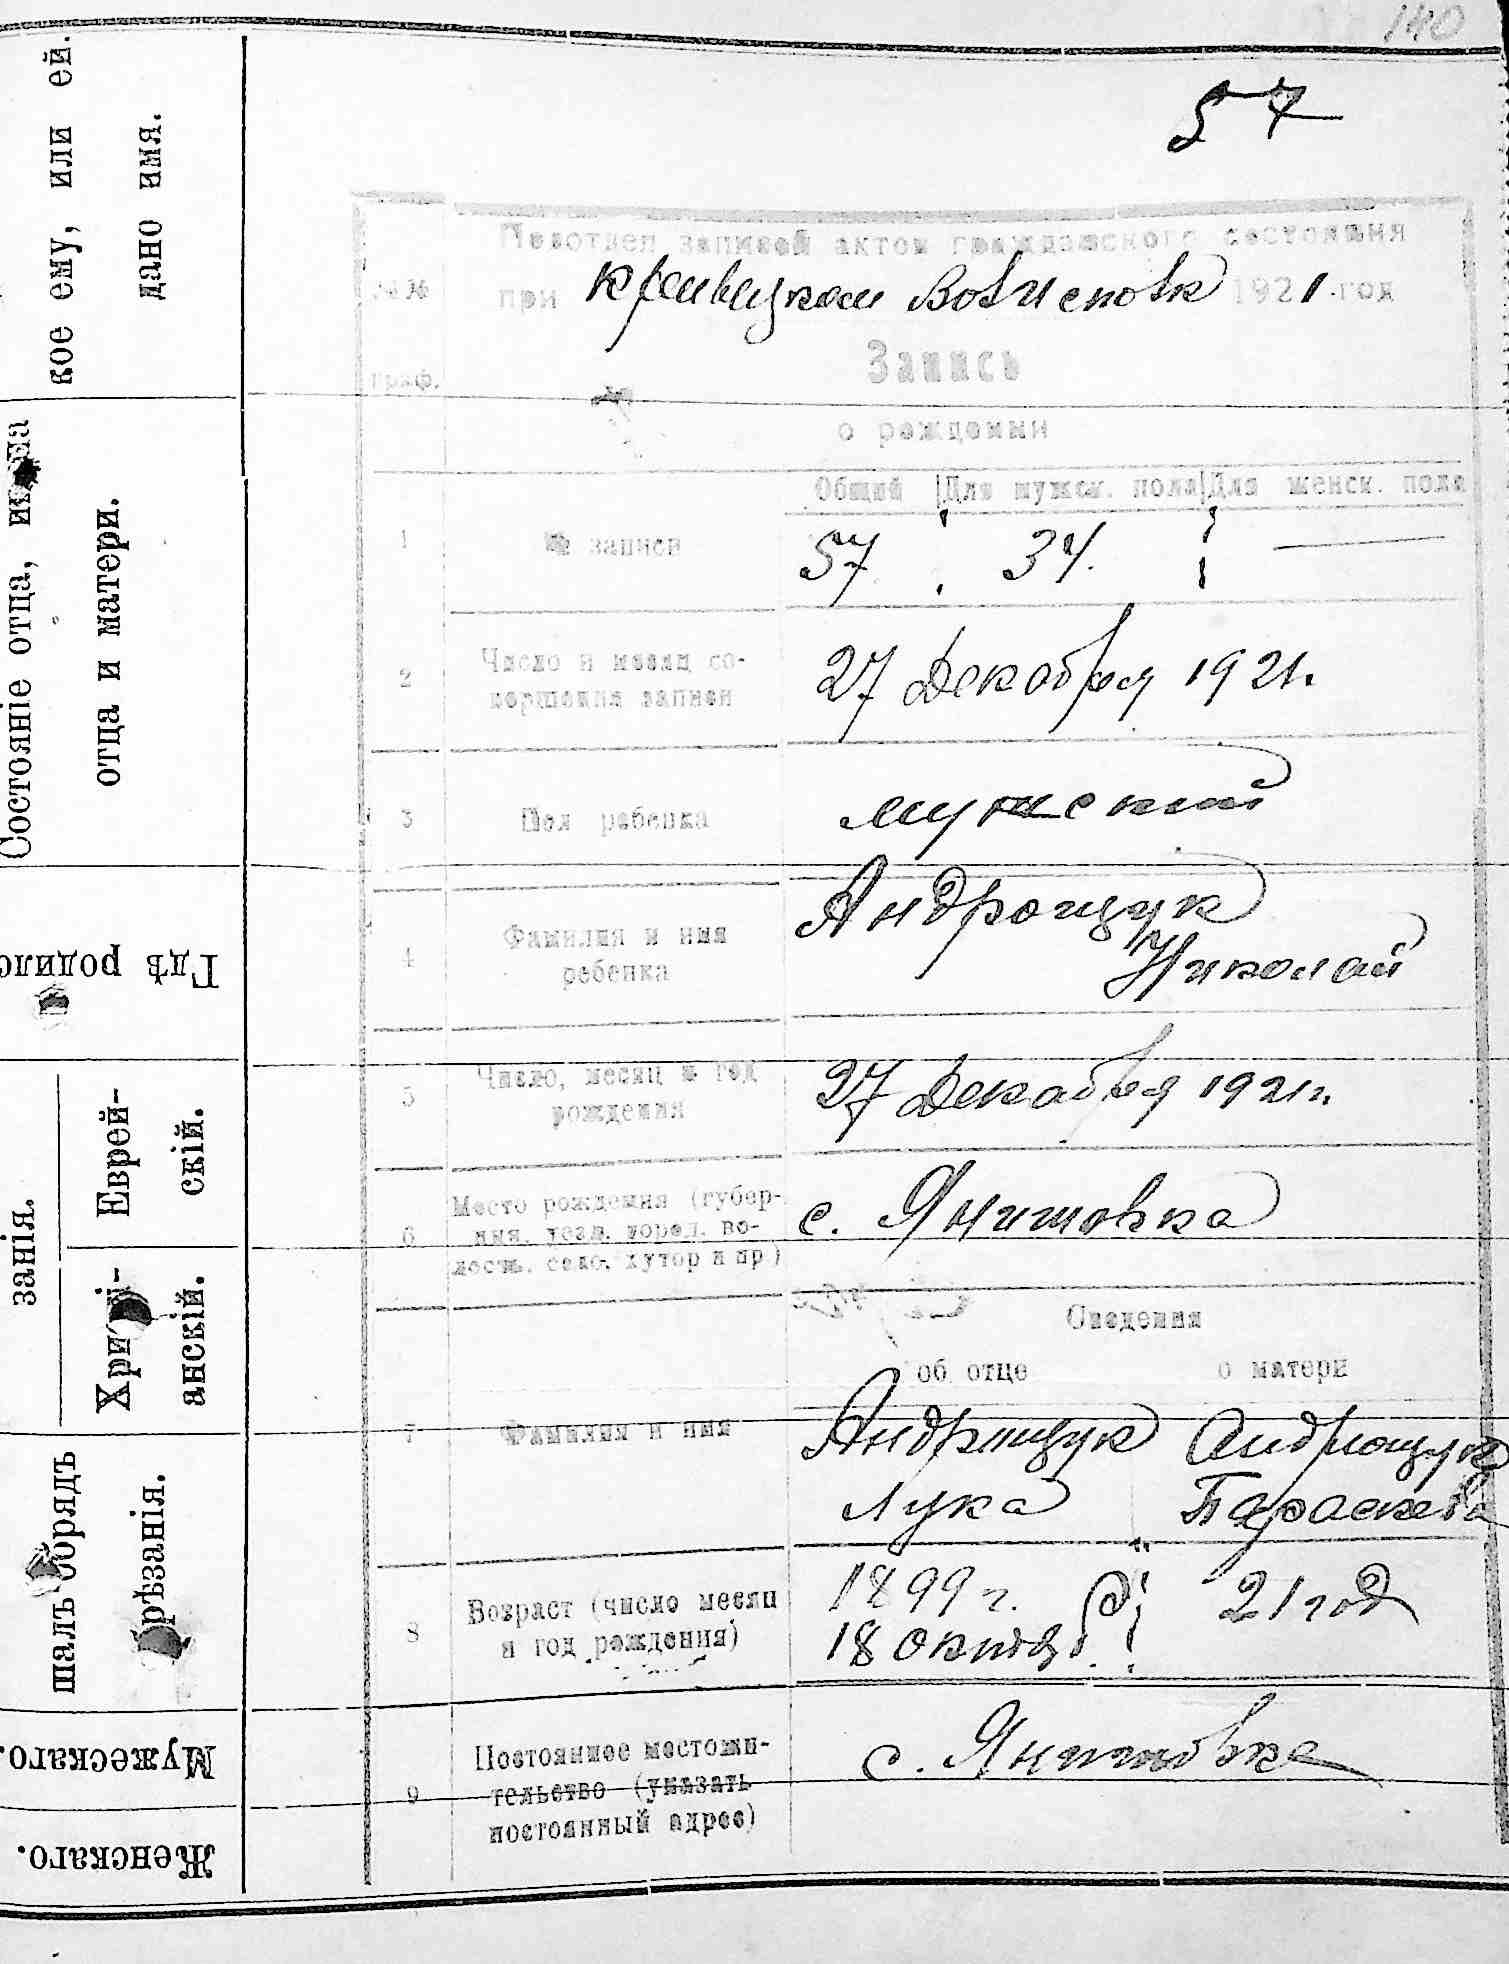 140
57
кое ему, или ей.
дано имя.
Состояніе отца,
отца и матери.
Гдѣ родился
занія.
Еврей-
скій.
Хри
анскій.
шалъ обрядъ
рѣзанія.
Мужескаго.
Женскаго.
Подотдел записей актов гражданского состояния
при Волисповк 1921 год
№№
граф.
Запись
о рождении
Общий Для мужск. пола Для женск. пола
1 № записи 57 34. —
2 Число и месяц со-
вершения записи
27 Декабря 1921г.
3 Пол ребенка мужский
4 Фамилия и имя
ребенка
Андрощук
Николай
5 Число, месяц и год
рождения
27 Декабря 1921г.
6 Место рождения (губер-
ния, уезд, город, во-
лость, село, хутор и пр)
с. Янишовка
Сведения
об отце о матери
7 Фамилия и имя Андрощук Андрощук
Лука Параскева
8 Возраст (число месяц
и год рождения)
1899 г. 21 год
18 октяб.
9 Постоянное местожи-
тельство (указать
постоянный адрес)
с. Янишовка